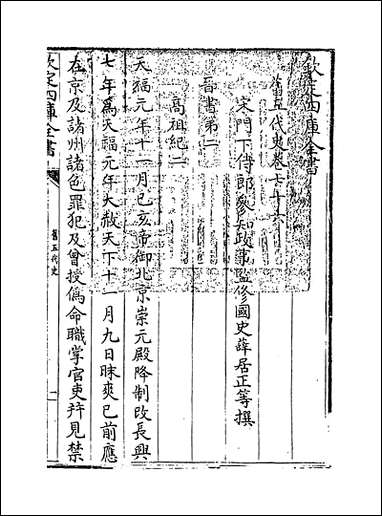 欽定四庫全書
舊五代史卷七十六
宋門下侍郎參知政事監修國史薛居正等撰
晉書第二
高祖紀二
天福元年十一月己亥帝御北京崇元殿降制改長興
七年為天福元年大赦天下十一月九日昧爽已前應
在京及諸州諸色罪犯及曾授偽命職掌官吏并見禁
欽定四庫全書
舊五代史
一